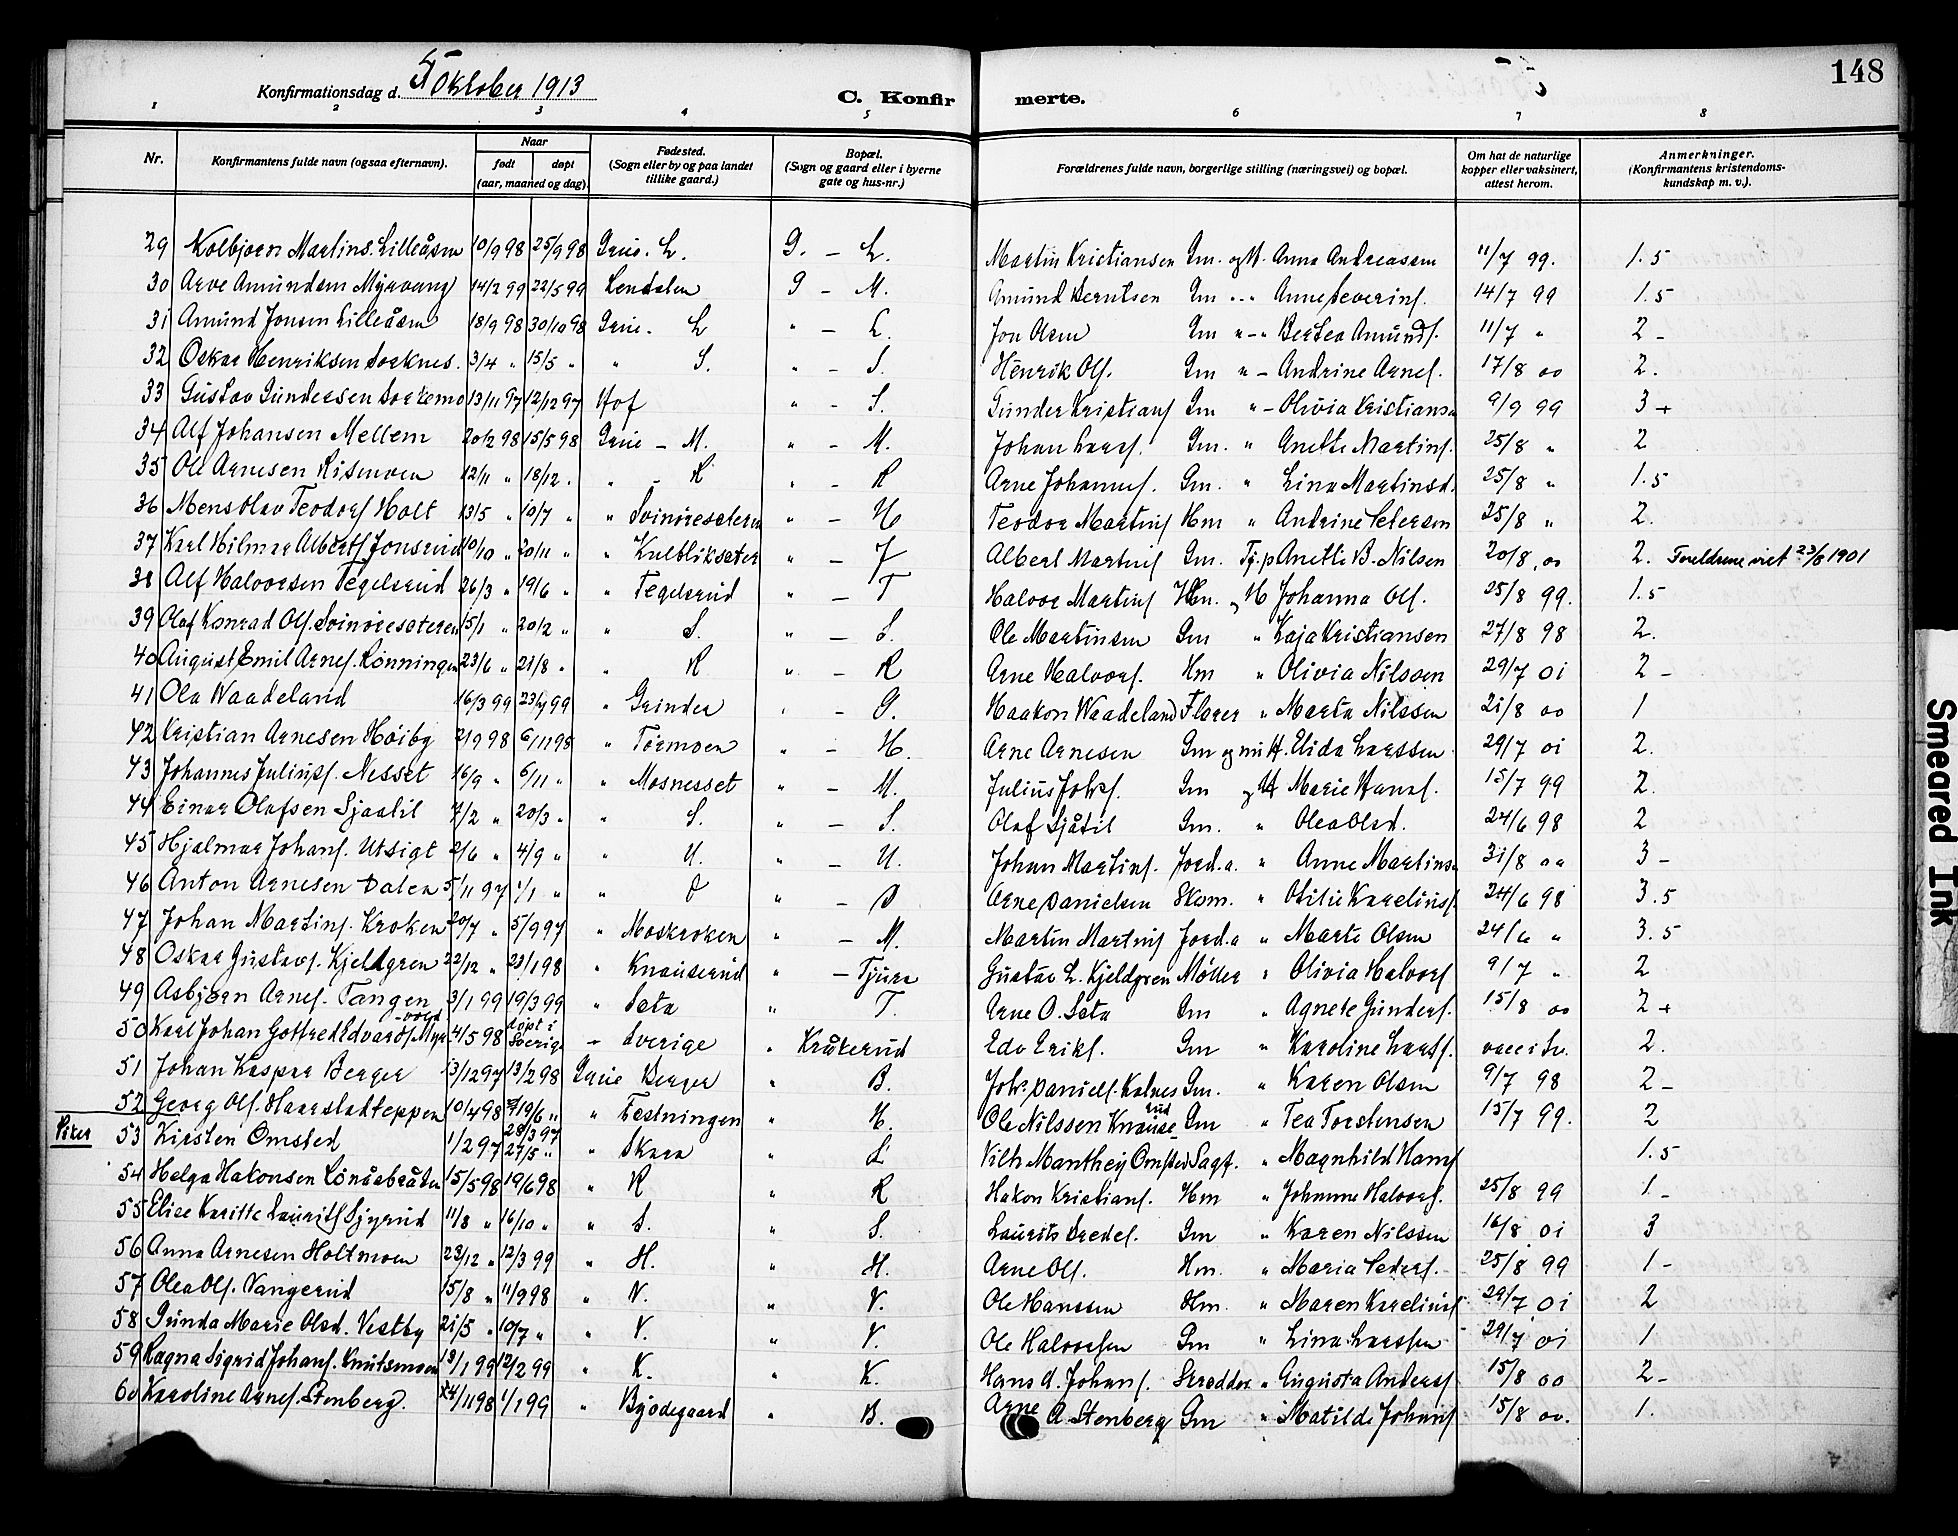 148
Konfirmationsdag d. 5 Oktober 1913
C. Konfirmerte.
1 2 3 4 5 6 7 8
Nr. Konfirmantens fulde navn (ogsaa efternavn). Naar født døpt (aar, maaned og dag) Fødested. (Sogn eller by og paa landet tillike gaard.) Bopæl. (Sogn og gaard eller i byerne gate og hus-nr.) Forældrenes fulde navn, borgerlige stilling (næringsvei) og bopæl. Om hat de naturlige kopper eller vaksinert, attest herom. Anmerkninger. (Konfirmantens kristendomskundskap m. v.).
29 Kolbjørn Martins. Lilleåsen 10/9 98 25/9 98 Grue. L. G. – L. Martin Kristiansen Gm. og H. Anna Andreassen 11/7 99. 1.5
30 Arve Amundsen Myrvang 14/2 99 22/5 99 Lendalen G – M. Amund Berntsen Gm „ – Anne Severins. 14/7 99 1.5
31 Amund Jonsen Lilleåsen 18/9 98 30/10 98 Grue. L „ – L. Jon Olsen Gm „ – „ Bertea Amunds. 11/7 „ 2 –
32 Oskar Henriksen Sorknes. 3/4 „ 15/5 „ „ S. „ – S. Henrik Ols. Gm „ – Andrine Arnes. 17/8 00 2.
33 Gustav Gundersen Sorkemo 13/11 97 12/12 97 Hof „ – S. Gunder Kristians Gm „ – Olivia Kristians 9/9 99 3+
34 Alf Johansen Mellem 20/2 98 15/5 98 Grue – M. „ – M. Johan Lars. Gm. „ Anette Martins. 25/8 „ 2
35 Ole Arnesen Rismoen 12/11 „ 18/12 „ „ – R „ – R Arne Johannes. Gm. „ Lina Martinsd. 25/8 „ 1.5
36 Mensolav Teodors Holt 13/5 „ 10/7 „ „ Svinøresæteren „ – H Teodor Martins Hm „ Andrine Petersen 25/8 „ 2.
37 Karl Hilmar Alberts Jonsrud 10/10 „ 20/11 „ „ Kulbliksæter „ – J Albert Martins Gm. Tj.p Anette B. Nilsen 20/8 00 2. Foreldrene viet 23/8 1901
38 Alf Halvorsen Tegelsrud 26/3 „ 19/6 „ „ Tegelsrud „ – T Halvor Martins Hm. og H Johanna Ols. 25/8 99. 1.5
39 Olaf Konrad Ols. Svinøresæteren 15/1 „ 20/2 „ „ S. „ – S. Ole Martinsen Gm „ Kaja Kristiansen 27/8 98 2.
40 August Emil Arnes. Rønningen 23/6 „ 21/8 „ „ R „ – R Arne Halvors. Hm „ Olivia Nilsson 29/7 01 2 –
41 Ola Waadeland 16/3 99 23/4 99 „ Grinder „ – G. Haakon Waadeland Florer „ Marta Nilssen 21/8 00 1
42 Kristian Arnesen Høiby 2/9 98 6/11 98 „ Tørmoen „ – H. Arne Arnesen Gm og nu H. Elida Larssen 29/7 01 2.
43 Johannes Juliuss. Nesset 16/9 „ 6/11 „ „ Mosnesset „ – M. Julius Johs. Gm og H Marie Hans. 15/7 99 2.
44 Einar Olafsen Sjaatil 7/2 „ 20/3 „ „ S. „ – S. Olaf Sjåtil Gm. „ Olea Olsd. 24/6 98 2
45 Hjalmar Johans. Utsigt 2/6 „ 4/9 „ „ U. „ – U. Johan Martins. Jord.a. „ Anne Martins 31/8 00 3 –
46 Anton Arnesen Dalen 5/11 97 1/1 „ „ D „ – D Arne Danielsen Skom. „ Otilie Karelius. 24/6 98 3.5
47 Johan Martins. Kroken 20/7 „ 5/9 97 „ Moskroken „ – M. Martin Martins Jord.a „ Marte Olsen 24/6 „ 3.5
48 Oskar Gustavs. Kjeldgren 22/12 „ 23/1 98 „ Knauserud „ – Tjura Gustav L. Kjeldgren Møller „ Olivia Halvors 9/7 „ 2
49 Asbjørn Arnes. Tangen 3/1 99 19/3 99 „ Sæta „ T. Arne O. Sæta Gm „ Agnete Gunders. 15/8 00 2+
50 Karl Johan Gotfred Edvards Myrvold 4/5 98 døpt i Sverige – Sverige „ Kråkerud Edv Eriks. Gm „ Karoline Lars. vacc i Sv. 2.
51 Johan Kaspar Berger 13/12 97 13/2 98 Grue Berger „ B. Johs. Daniels. Kalnes Gm. „ Karen Olsen 9/7 98 2 –
52 Georg Ols. Haarstadteppen 10/4 98 19/6 „ „ Festningen „ H. Ole Nilssen Knauserud Gm „ Tea Torstensen 15/7 99. 2
Piker
53 Kirsten Omsted 1/2 97 28/3 97 27/5 „ „ Skara „ L Vilh Manthey Omsted Sagf. „ Magnhild Hans 1.5
54 Helga Hakonsen Lönåsbråten 15/5 98 19/6 98 „ R „ R Hakon Kristians. Hm „ Johanne Halvors. 25/8 99 1 –
55 Elise Karitte Laurits Sjyrud 11/8 „ 16/10 „ „ S. „ S. Laurits Fredes. Gm „ Karen Nilssen 16/8 01 3
56 Anna Arnesen Holtmoen 23/12 „ 12/3 99 „ H. „ H. Arne Ols. Hm. „ Maria Peders. 25/8 99 1 –
57 Olea Ols. Vangerud 15/8 „ 11/9 98 „ V. „ V. Ole Hanssen Hm. „ Maren Karelius 29/7 01 2
58 Gunda Marie Olsd. Vestby 21/5 „ 10/7 „ „ V. „ V. Ole Halvorsen Gm „ Lina Larssen 29/7 01 1
59 Ragna Sigrid Johans. Knutsmoen 13/1 99 12/2 99 „ K. „ K. Hans A. Johans. Skredder „ Augusta Anders 15/8 00 2 –
60 Karoline Arnes. Stenberg. 24/11 98 1/1 99 „ Bjødegaard „ B. Arne A. Stenberg Gm „ Matilde Johans 15/8 00. 1.
Smeared Ink